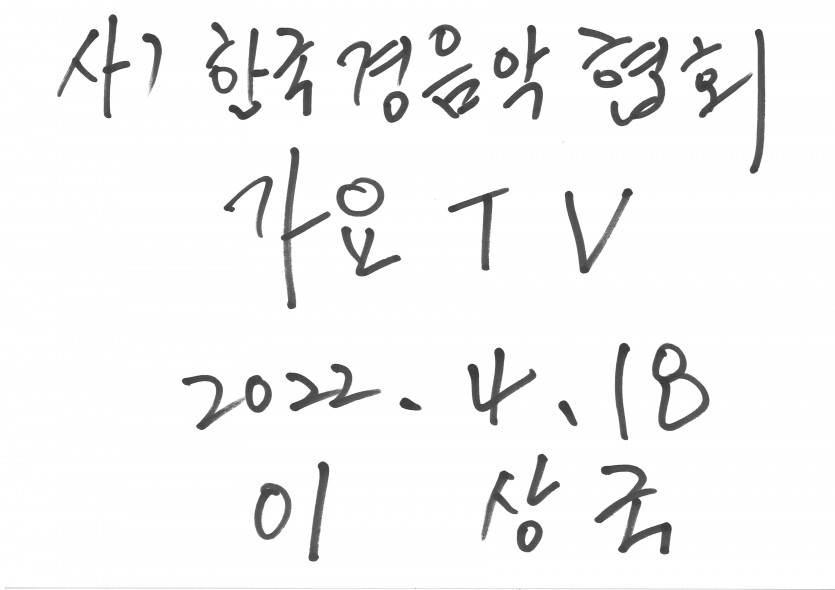 사) 한국경음악협회
가요 TV
2022. 4. 18
이 상국